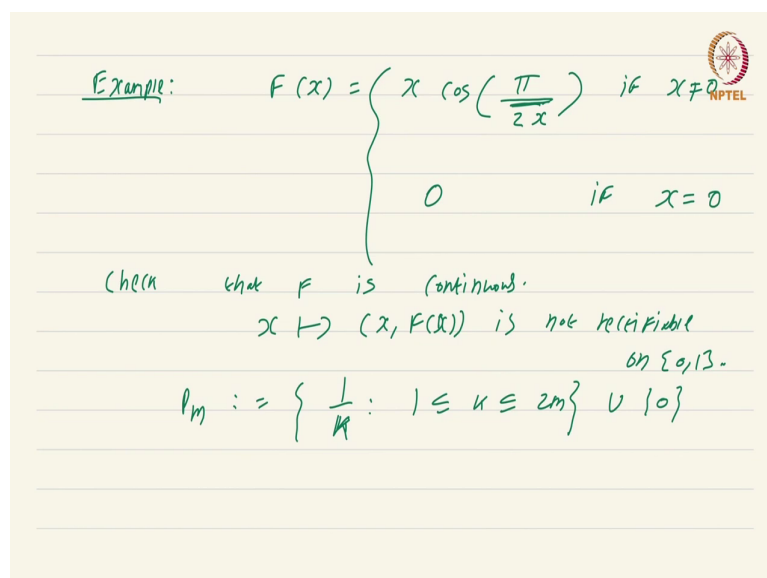 Example: F(x) = { x cos(π/2x) if x ≠ 0
NPTEL
0 if x = 0
Check that F is continuous.
x ↦ (x, F(x)) is not rectifiable
on [0,1].
Pm := { 1/K : 1 ≤ K ≤ 2m } ∪ {0}